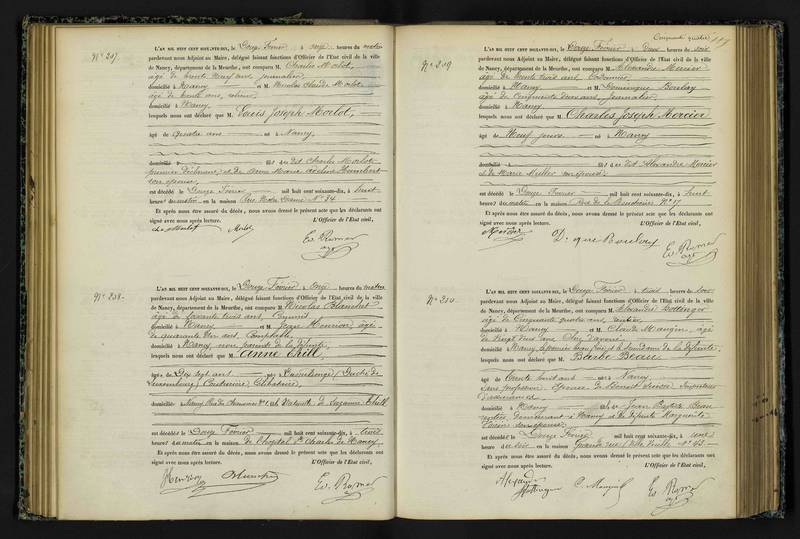 N° 207.
L'AN MIL HUIT CENT SOIXANTE-DIX, le Douze Février à onze heures du matin
pardevant nous Adjoint au Maire, délégué faisant fonctions d'Officier de l'Etat civil de la ville
de Nancy, département de la Meurthe, ont comparu M. Charles Morlot,
âgé de trente neuf ans, journalier,
domicilié à Nancy et M. Nicolas Claude Morlot
âgé de trente ans,
domicilié à Nancy,
lesquels nous ont déclaré que M. Louis Joseph Morlot,
âgé de quatre ans né à Nancy,
domicilié fils de dit Charles Morlot
premier déclarant, et de Anne Marie Humbert
son épouse,
est décédé le Douze Février mil huit cent soixante-dix, à huit
heures du matin en la maison Rue Notre Dame N° 34
Et après nous être assuré du décès, nous avons dressé le présent acte que les déclarants ont
signé avec nous après lecture. L'Officier de l'Etat civil,
Morlot
N° 208.
L'AN MIL HUIT CENT SOIXANTE-DIX, le Douze Février à onze heures du matin
pardevant nous Adjoint au Maire, délégué faisant fonctions d'Officier de l'Etat civil de la ville
de Nancy, département de la Meurthe, ont comparu M. Nicolas Blanchet
âgé de soixante trois ans,
domicilié à Nancy et M. Jean Henrion, âgé
de quarante ans,
domicilié à Nancy, non parents de la défunte,
lesquels nous ont déclaré que M. Anne Thill
âgée de Dix sept ans née à (Duché de
Luxembourg) Couturière, Célibataire,
domiciliée à Nancy, fille de Suzanne Thill
est décédée le Douze Février mil huit cent soixante-dix, à trois
heures du matin en la maison de l'hôpital St Charles de Nancy.
Et après nous être assuré du décès, nous avons dressé le présent acte que les déclarants ont
signé avec nous après lecture. L'Officier de l'Etat civil,
Henrion
Cinquante quatre
N° 209
L'AN MIL HUIT CENT SOIXANTE-DIX, le Douze Février à deux heures du soir
pardevant nous Adjoint au Maire, délégué faisant fonctions d'Officier de l'Etat civil de la ville
de Nancy, département de la Meurthe, ont comparu M. Alexandre Mercier
âgé de trente trois ans, Cordonnier,
domicilié à Nancy et M. Dominique
âgé de cinquante deux ans, journalier,
domicilié à Nancy
lesquels nous ont déclaré que M. Charles Joseph Mercier
âgé de Neuf jours né à Nancy
domicilié à fils de dit Alexandre Mercier
et de Marie Muller son épouse
est décédé le Douze Février mil huit cent soixante-dix, à huit
heures du matin en la maison Rue de la N° 17
Et après nous être assuré du décès, nous avons dressé le présent acte que les déclarants ont
signé avec nous après lecture. L'Officier de l'Etat civil,
Mercier
N° 210.
L'AN MIL HUIT CENT SOIXANTE-DIX, le Douze Février à trois heures du soir
pardevant nous Adjoint au Maire, délégué faisant fonctions d'Officier de l'Etat civil de la ville
de Nancy, département de la Meurthe, ont comparu M. Alexandre Hottinger
âgé de Cinquante quatre ans, rentier,
domicilié à Nancy et M. Claude Mangin, âgé
de vingt
domicilié à Nancy, le premier beau frère et le second ami de la défunte,
lesquels nous ont déclaré que M. Barbe Beau
âgée de trente huit ans née à Nancy
sans profession, épouse de Benoit
domiciliée à Nancy fille de Jean Baptiste Beau
rentier, demeurant à Nancy et de défunte Marguerite
son épouse
est décédée le Douze Février mil huit cent soixante-dix, à une
heure du soir en la maison Grande rue (Ville Vieille) N° 43
Et après nous être assuré du décès, nous avons dressé le présent acte que les déclarants ont
signé avec nous après lecture. L'Officier de l'Etat civil,
Alexandre
Hottinger C. Mangin